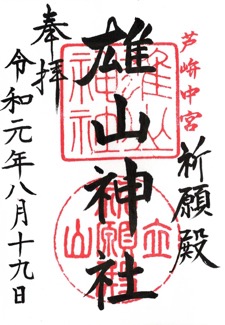 芦峅中宮
祈願殿
雄山神社
奉拝
令和元年八月十九日
雄山神社
立山
祈願殿